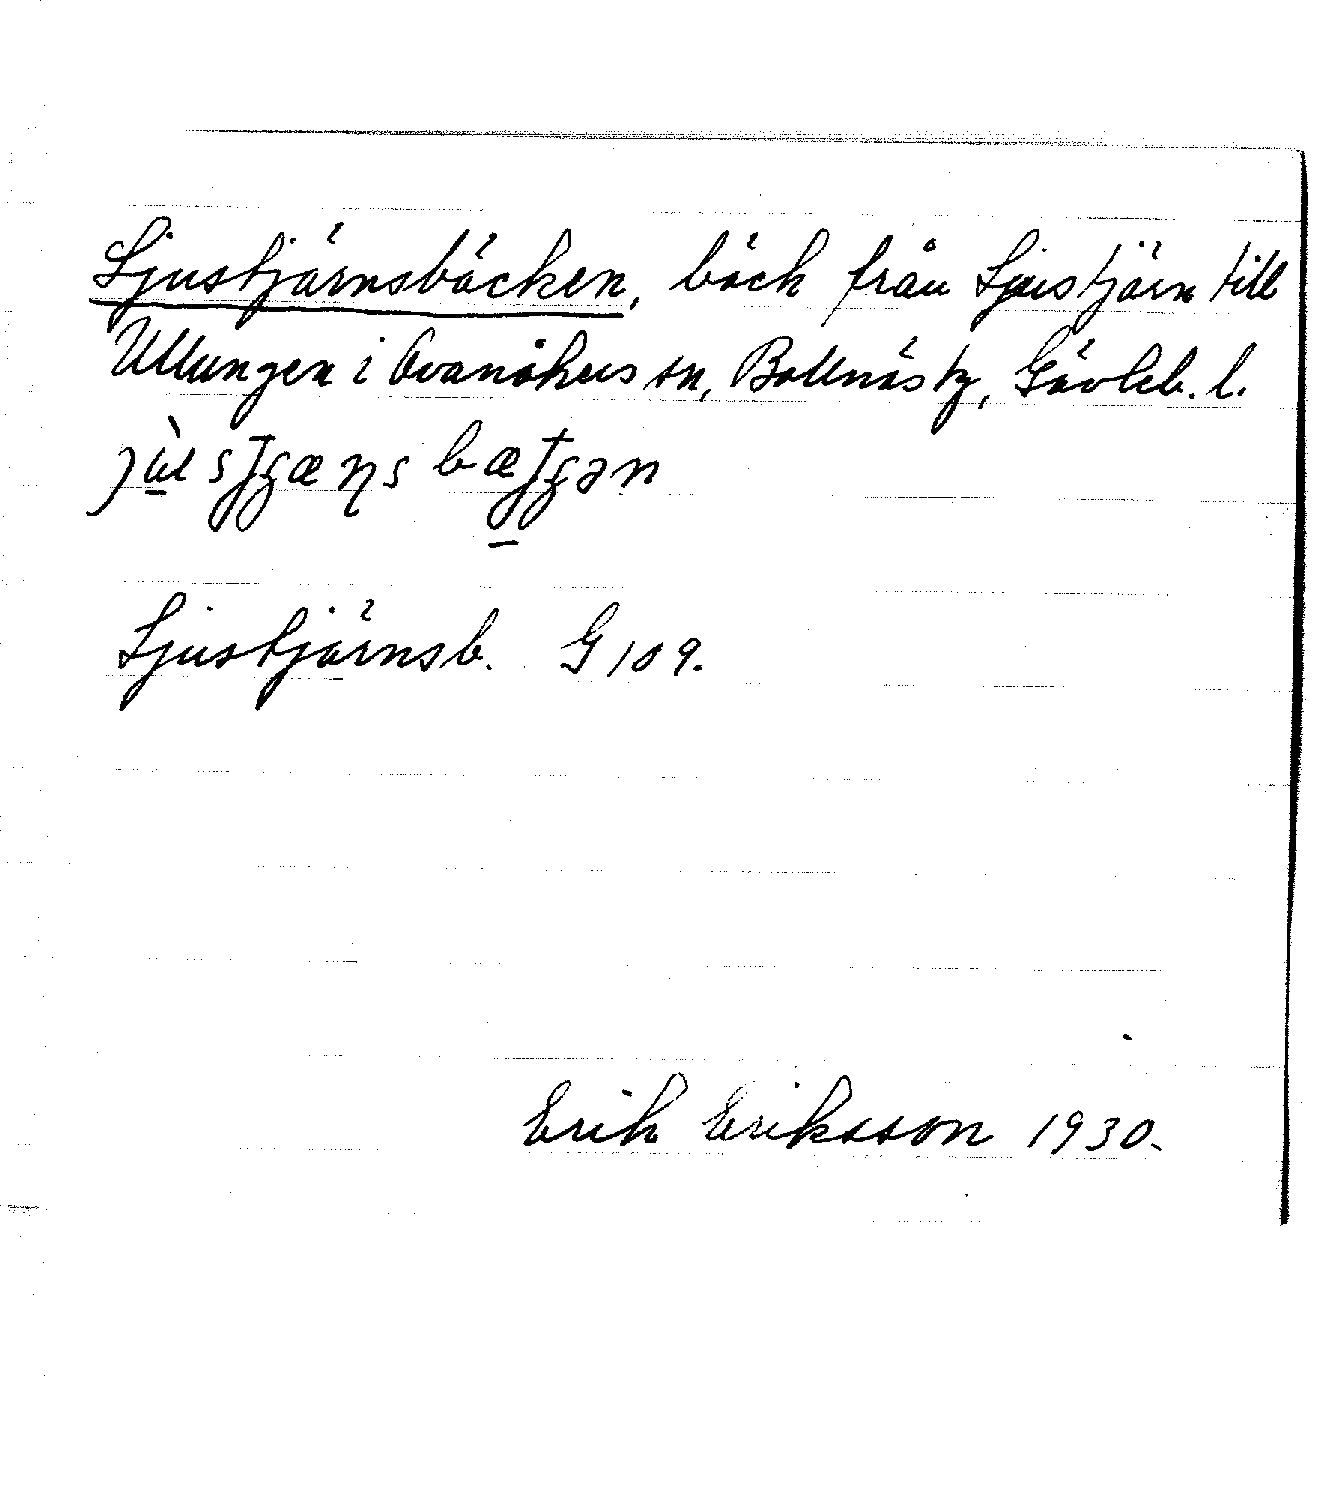 Ljustjärnsbäcken, bäck från Ljustjärn till
Ullungen i Ovanåkers sn, Bollnäs tg, Gävleb. l.
Ljustjärnsb. G 109.
Erik Eriksson 1930.